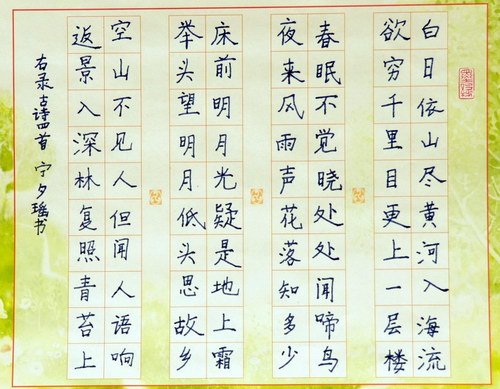 白日依山尽黄河入海流
欲穷千里目更上一层楼
春眠不觉晓处处闻啼鸟
夜来风雨声花落知多少
床前明月光疑是地上霜
举头望明月低头思故乡
空山不见人但闻人语响
返景入深林复照青苔上
右录古诗四首 宁夕瑶书